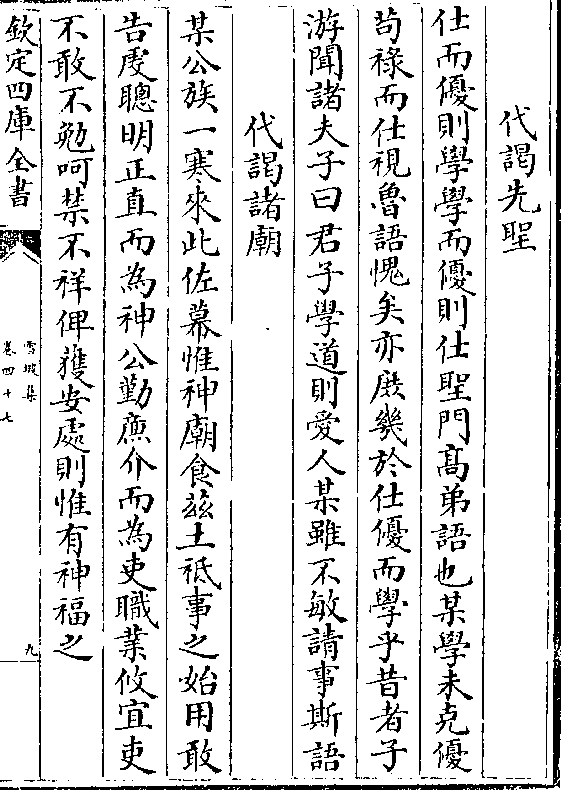 代謁先聖
仕而優則學學而優則仕聖門髙弟語也某學未克優
茍禄而仕視魯語愧矣亦庶幾於仕優而學乎昔者子
游聞諸夫子曰君子學道則愛人某雖不敏請事斯語
代謁諸廟
某公族一寒來此佐幕惟神廟食兹土祗事之始用敢
告虔聰明正直而為神公勤亷介而為吏職業攸宜吏
不敢不勉呵禁不祥俾獲安處則惟有神福之
欽定四庫全書
雪坡集
卷四十七
九